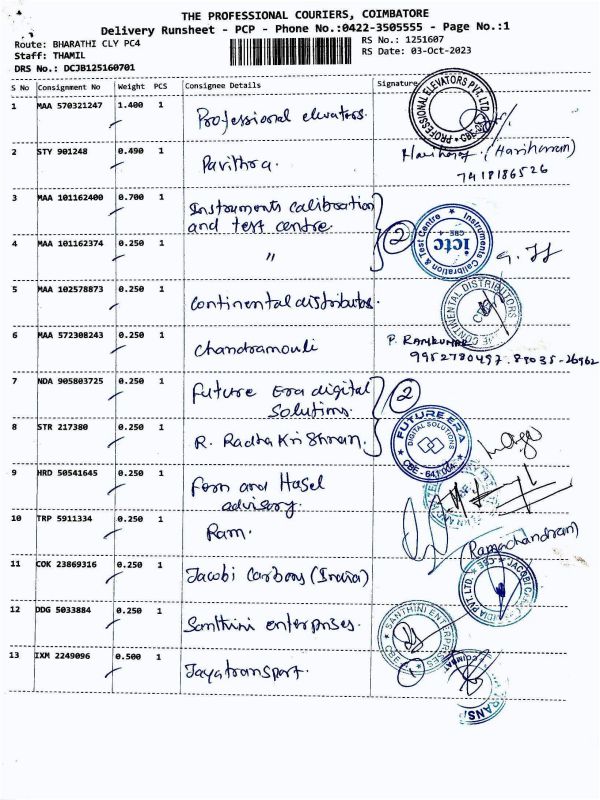 THE PROFESSIONAL COURIERS, COIMBATORE
Delivery Runsheet - PCP - Phone No.:0422-3505555 - Page No.:1
Route: BHARATHI CLY PC4
RS No.: 1251607
Staff: THAMIL
RS Date: 03-Oct-2023
DRS No.: DCJB125160701
S No Consignment No Weight PCS Consignee Details Signature
1 MAA 570321247 1.400 1 Professional elevators.
PROFESSIONAL ELEVATORS PVT. LTD. CBE
2 STY 901248 0.490 1 Pavithra. (Hariharan)
7418186526
3 MAA 101162400 0.700 1 Instruments calibration
and test centre 2
Instruments Calibration & Test Centre ictc CBE - 4
4 MAA 101162374 0.250 1 "
5 MAA 102578873 0.250 1 Continental distributors.
CONTINENTAL DISTRIBUTORS
6 MAA 572308243 0.250 1 Chandramouli P. RAMKUMAR
9952780497.
7 NDA 905803725 0.250 1 Future Era digital
Solutions. 2
FUTURE ERA DIGITAL SOLUTIONS CBE - 641 004
8 STR 217380 0.250 1 R. Radha Krishnan.
9 HRD 50541645 0.250 1 Forn and Hasel
advisory.
10 TRP 5911334 0.250 1 Ram. (Ramachandran)
11 COK 23869316 0.250 1 Jacobi Carbons (India)
12 DDG 5033884 0.250 1 Santhini enterprises.
SANTHINI ENTERPRISES CBE
13 IXM 2249096 0.500 1 Jayatransport. 1